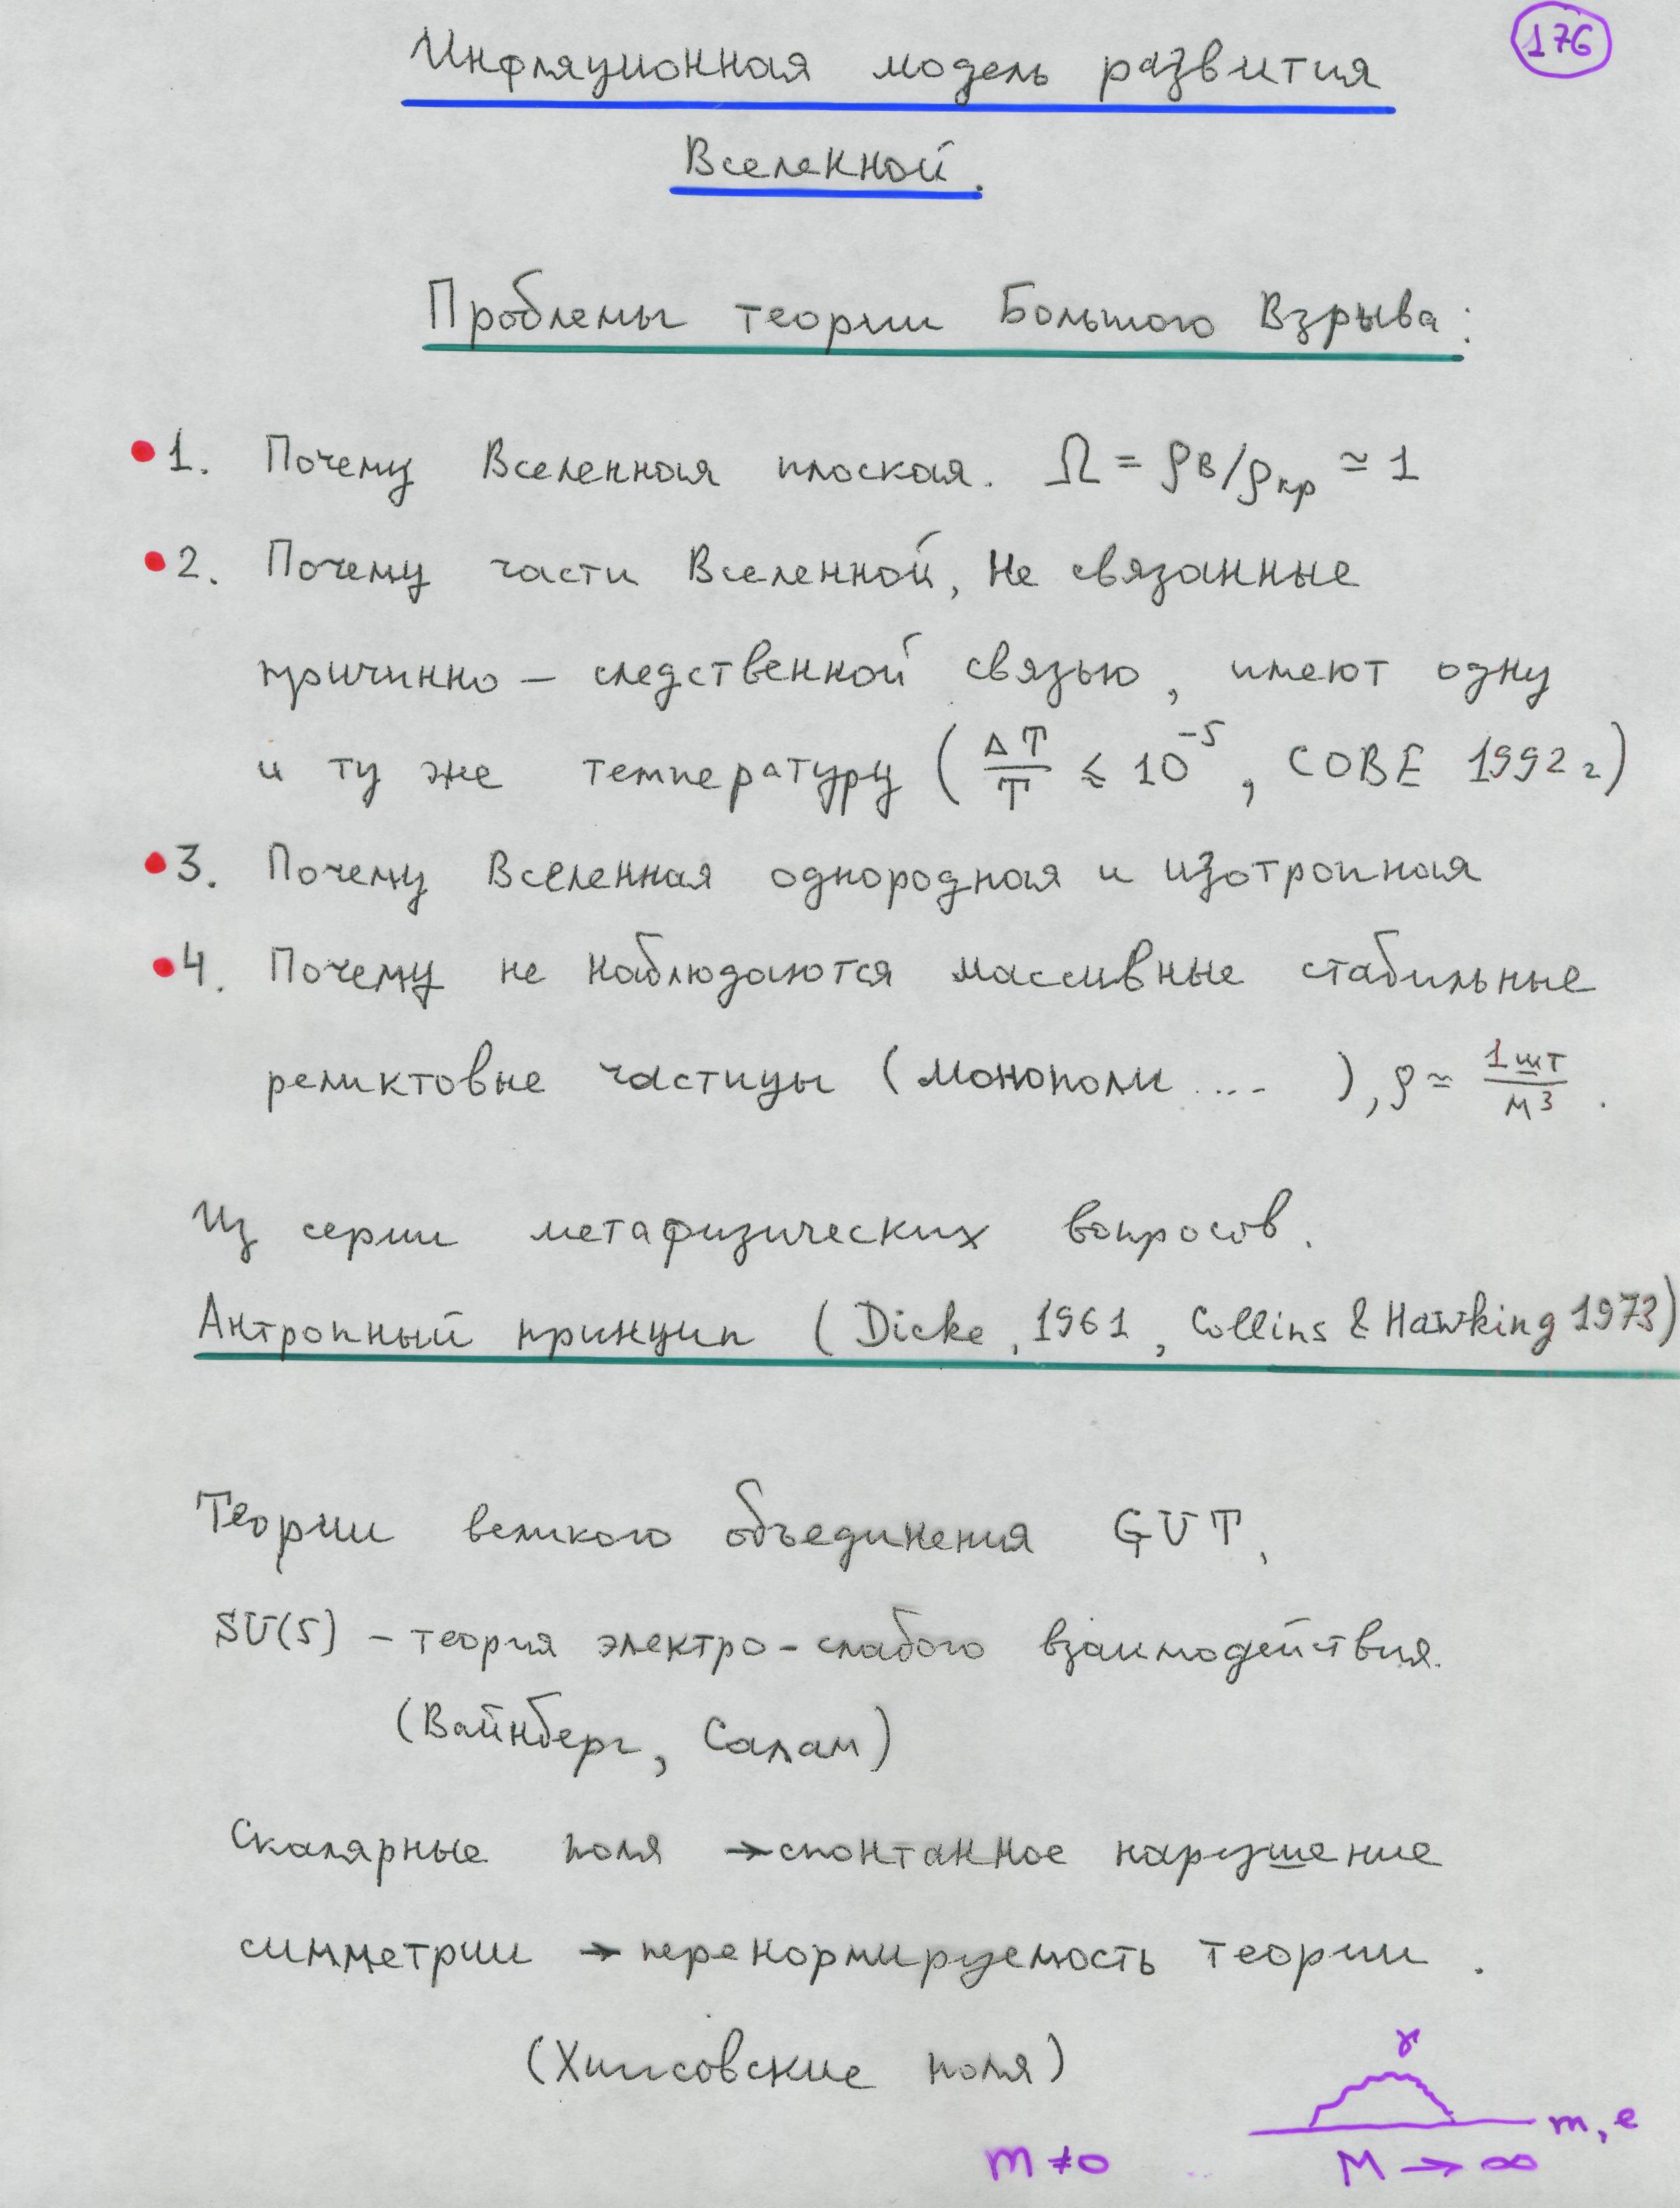 176
Инфляционная модель развития
Вселенной.
Проблемы теории Большого Взрыва:
1. Почему Вселенная плоская. Ω = ρв/ρкр ≃ 1
2. Почему части Вселенной, Не связанные
причинно – следственной связью, имеют одну
и ту же температуру (ΔT/T ≲ 10⁻⁵, COBE 1992 г)
3. Почему Вселенная однородная и изотропная
4. Почему не наблюдаются массивные стабильные
реликтовые частицы (монополи .... ), ρ ≃ 1 шт/м³.
Из серии метафизических вопросов.
Антропный принцип (Dicke, 1961, Collins & Hawking 1973)
Теории великого объединения GUT,
SU(5) – теория электро-слабого взаимодействия.
(Вайнберг, Салам)
Скалярные поля → спонтанное нарушение
симметрии → перенормируемость теории.
(Хиггсовские поля)
γ
m, e
m ≠ 0 M → ∞